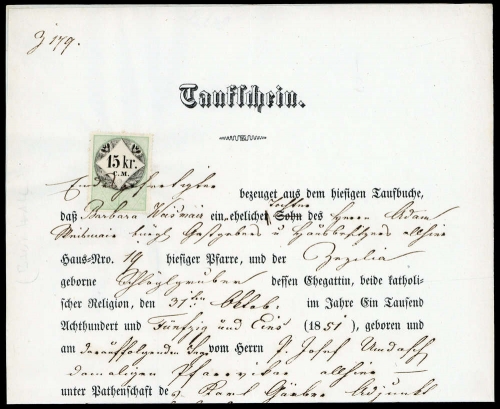 Z 179.
Taufschein.
15 kr.
C. M.
Endesgefertigter bezeuget aus dem hiesigen Taufbuche,
daß Barbara Weismair ein ehelich Tochter Sohn des Herrn Adam
Weismair bürgl. Gastgebers u Hausbesitzers allhier
Haus-Nro. 19 hiesiger Pfarre, und der Zezilia
geborne Schlöglgruber dessen Ehegattin, beide katholi-
scher Religion, den 31ten Oktob. im Jahre Ein Tausend
Achthundert und Fünfzig und Eins (1851), geboren und
am darauffolgenden Tag vom Herrn J. Josef
damaligen Pfarrvikar allhier
unter Pathenschaft des Karl Adjunkt